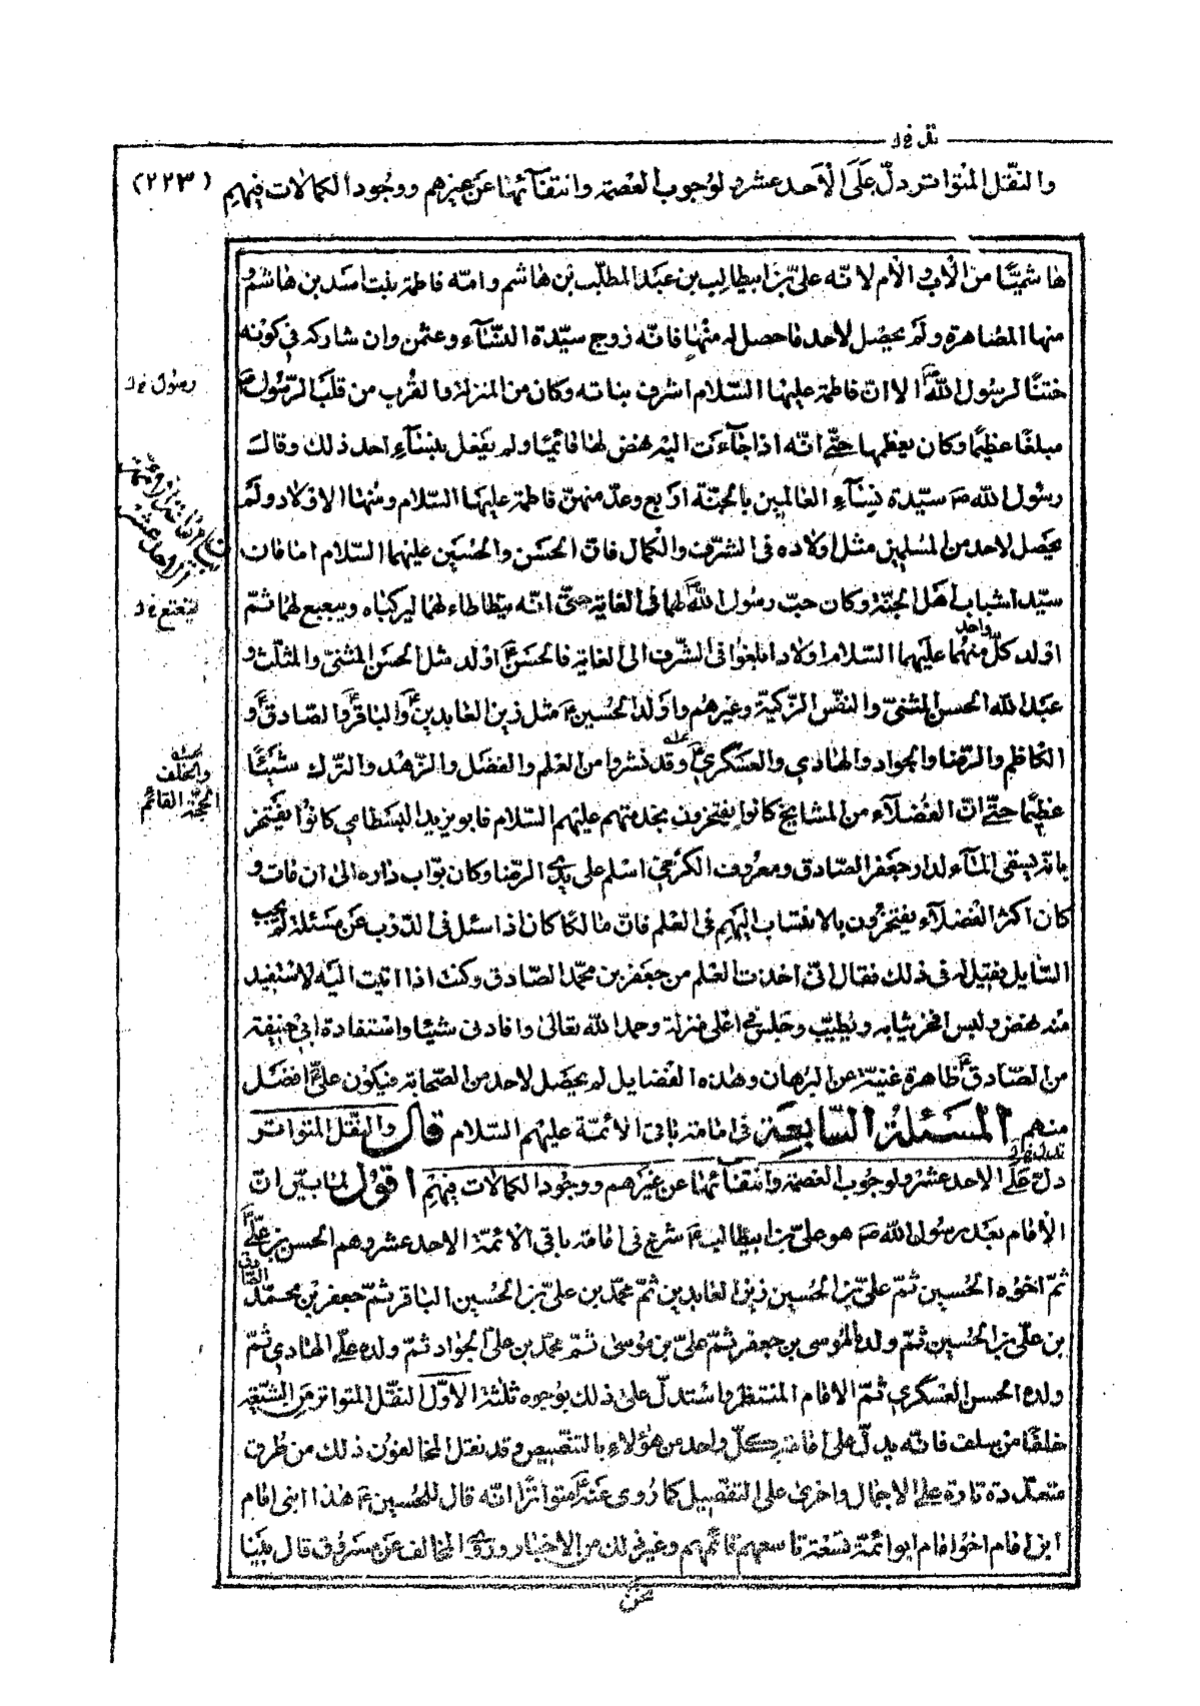 تدل خ ل
والنقل المتواتر دلّ على الأحد عشر و لوجوب العصمة وانتفائها عن غيرهم ووجود الكمالات فيهم (٢٢٣)
هاشميّا من الأب و الأم لانّه علىّ بن ابيطالب بن عبد المطلب بن هاشم و امّه فاطمة بنت اسد بن هاشم و
منها المصاهرة و لم يحصل لاحد ما حصل له منها فانّه زوج سيّدة النسآء و عثمن وان شاركه فى كونه
ختنًا لرسول الله ص الا ان فاطمة عليها السّلام اشرف بناته وكان من المنزلة والقرب من قلب الرّسول ص
مبلغًا عظيمًا وكان يعظمها حتّى انّه اذا جآءت اليه نهض لها قائمًا ولم يفعل بنسآء احد ذلك وقال
رسول الله ص سيّدة نسآء العالمين بالجنّة اربع وعدّ منهنّ فاطمة عليها السّلام ومنها الاولاد ولم
يحصل لاحد من المسلمين مثل اولاده فى الشرف والكمال فانّ الحسن والحسين عليهما السّلام امامان
سيّدا شباب اهل الجنّة وكان حبّ رسول الله ص لهما فى الغاية حتّى انّه يتطاطاء لهما ليركباه ويبعبع لهما ثمّ
اولد كلّ واحد منهما عليهما السّلام اولادا بلغوا فى الشّرف الى الغاية فالحسن ع اولد مثل الحسن المثنىّ والمثلّث و
عبد الله الحسن المثنىّ والنفس الزّكيّة وغيرهم واولد الحسين ع مثل زين العابدين ع والباقر ع والصّادق ع و
الكاظم والرّضا والجواد والهادي والعسكري ع وقد نشروا من العلم والفضل والزّهد والترك شيئًا
عظيمًا حتّى انّ الفضلآء من المشايخ كانوا يفتخرون بخدمتهم عليهم السّلام فابو يزيد البسطامي كانوا يفتخر
بانّه يسقى المآء لدار جعفر الصّادق ومعروف الكرخي اسلم على يدى الرضا وكان بوّاب داره الى ان مات و
كان اكثر الفضلآء يفتخرون بالانتساب اليهم فى العلم فانّ مالكًا كان اذا سئل فى الدّرب عن مسئلة لم يجب
السّايل فقيل له فى ذلك فقال انّى اخذت العلم من جعفر بن محمّد الصّادق وكنت اذا اتيت اليه لاستفيد
منه نهض ولبس افخر ثيابه وتطيّب وجلس فى اعلى منزلة وحمد الله تعالى وافادنى شيئا واستفادة ابى حنيفة
من الصّادق ع ظاهرة غنيّة عن البرهان وهذه الفضايل لم يحصل لاحد من الصّحابة فيكون علىّ ع افضل
منهم المسئلة السّابعة فى امامة باقى الائمّة عليهم السّلام قال والنقل المتواتر
دلّ على الاحد عشر و لوجوب العصمة وانتفآئها عن غيرهم ووجود الكمالات فيهم اقول لمّا بيّن انّ
تدل خ ل
الامام بعد رسول الله ص هو علىّ بن ابيطالب ع شرع فى امامة باقى الائمّة الاحد عشر وهم الحسن بن علىّ
ثمّ اخوه الحسين ثمّ علىّ بن الحسين زين العابدين ثمّ محمّد بن علىّ بن الحسين الباقر ثمّ جعفر بن محمّد الصّادق
بن علىّ بن الحسين ثمّ ولده الموسى بن جعفر ثمّ علىّ بن موسى ثمّ محمّد بن علىّ الجواد ثمّ ولده علىّ الهادي ثمّ
ولده الحسن العسكري ثمّ الامام المنتظر واستدلّ على ذلك بوجوه ثلثة الاوّل النّقل المتواتر من الشّيعة
خلفًا من سلف فانّه يدلّ على امامة كلّ واحد من هؤلاء بالتنصيص وقد نقل المخالفون ذلك من طرق
متعدّدة تارة على الاجمال واخرى على التفصيل كما روى عنه ع متواترًا انّه قال للحسين ع هذا ابنى امام
ابن امام اخو امام ابو ائمّة تسعة تاسعهم قائمهم وغير ذلك من الاخبار وروى المخالف عن مسروق قال بينا
نحن
رسول خ ل
يتغتغ خ ل
والخلف
الحجّة القائم